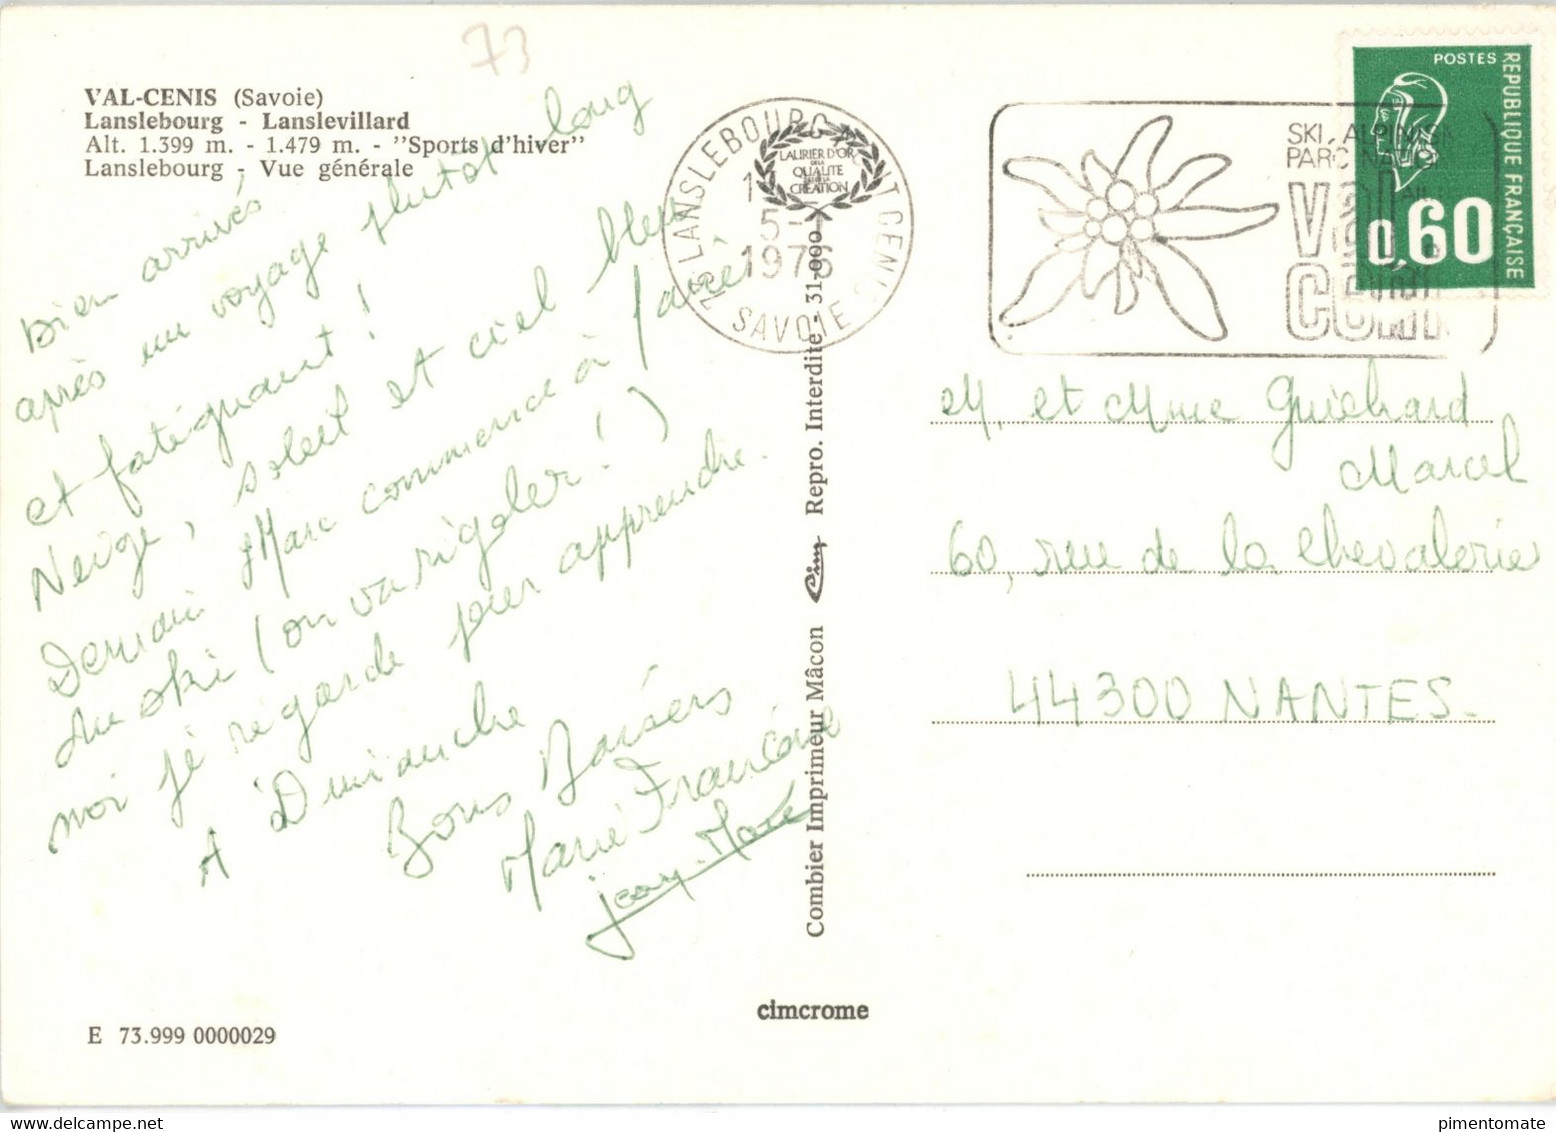 73
VAL-CENIS (Savoie)
Lanslebourg - Lanslevillard
Alt. 1.399 m. - 1.479 m. - "Sports d'hiver"
Lanslebourg - Vue générale
Bien arrivés
après un voyage plutôt long
et fatiguant !
Neige, soleil et ciel bleu
Demain Marc commence à faire
du ski (on va rigoler !)
moi je regarde pour apprendre.
A Dimanche
Bons Baisers
Marie Françoise
Jean-Marc
E 73.999 0000029
LANSLEBOURG MONT CENIS
5-1
1976
SAVOIE
LAURIER D'OR
DE LA
QUALITE
CREATION
Combier Imprimeur Mâcon Cim Repro. Interdite - 31-000
cimcrome
SKI, ALPINISM
PARC NA
Val
Ceni
POSTES
REPUBLIQUE FRANÇAISE
0,60
M. et Mme Guichard
Marcel
60, rue de la Chevalerie
44300 NANTES.
pimentomate